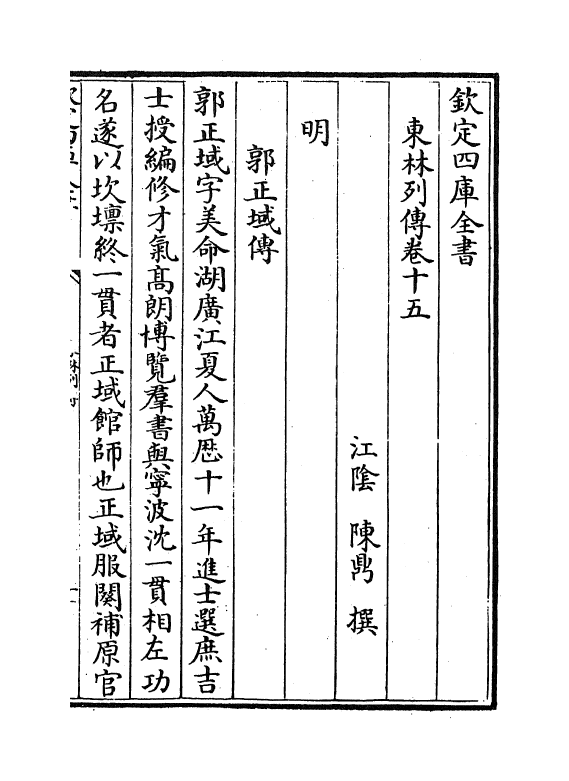 欽定四庫全書
東林列傳卷十五
江陰 陳鼎 撰
明
郭正域傳
郭正域字美命湖廣江夏人萬厯十一年進士選庶吉
士授編修才氣髙朗博覽羣書與寧波沈一貫相左功
名遂以坎壈終一貫者正域館師也正域服闋補原官